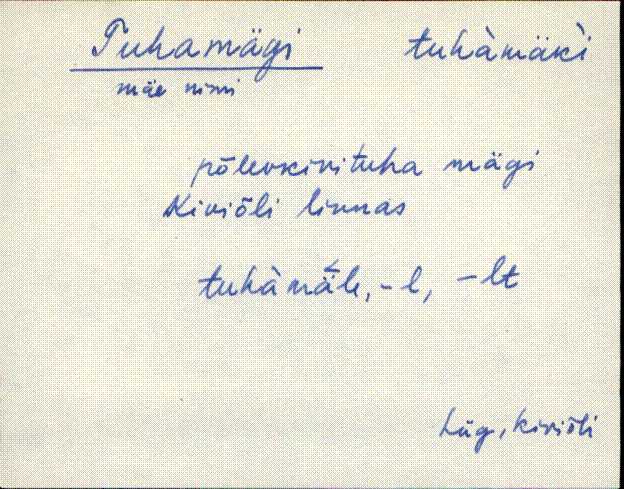 Tuhamägi tuhàmäkì
mäe nimi
põlevkivituha mägi
Kiviõli linnas
tuhàmäle, -l, -lt
Lüg, Kiviõli